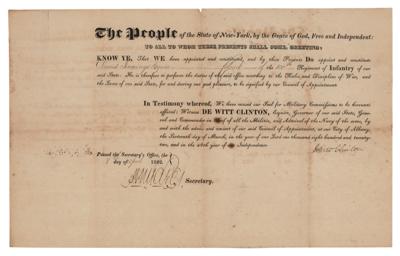 The People of the State of New-York, by the Grace of God, Free and Independent:
TO ALL TO WHOM THESE PRESENTS SHALL COME, GREETING:
KNOW YE, That WE have appointed and constituted, and by these Presents DO appoint and constitute
of the Regiment of Infantry of our
said State: He is therefore to perform the duties of the said office according to the Rules and Discipline of War, and
the Laws of our said State, for and during our good pleasure, to be signified by our Council of Appointment.
In Testimony whereof, We have caused our Seal for Military Commissions to be hereunto
affixed: Witness DE WITT CLINTON, Esquire, Governor of our said State, General
and Commander in Chief of all the Militia, and Admiral of the Navy of the same, by
and with the advice and consent of our said Council of Appointment, at our City of Albany,
the day of March, in the year of our Lord one thousand eight hundred and twenty-
two, and in the year of our Independence.
Passed the Secretary's Office, the
day of 1822.
Secretary.